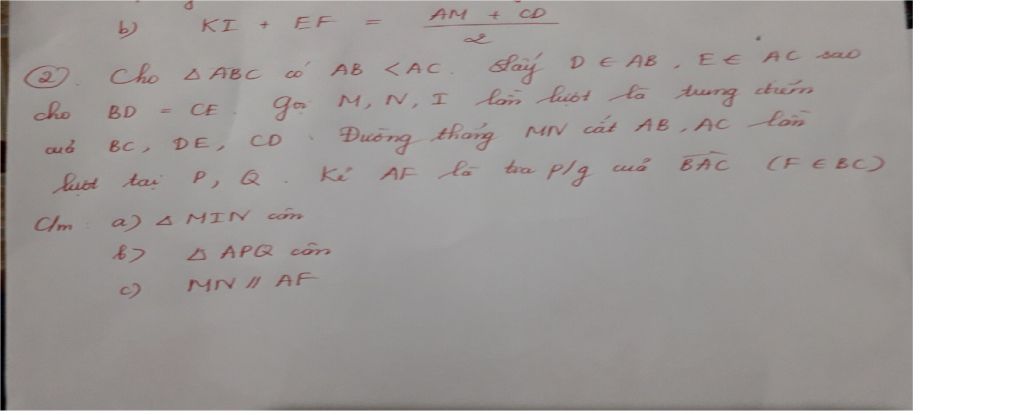 b) KI + EF = AM + CD / 2
② Cho △ABC có AB < AC. Lấy D ∈ AB, E ∈ AC sao
cho BD = CE. Gọi M, N, I lần lượt là trung điểm
của BC, DE, CD. Đường thẳng MN cắt AB, AC lần
lượt tại P, Q. Kẻ AF là tia p/g của BAC (F ∈ BC)
C/m: a) △MIN cân
b) △APQ cân
c) MN // AF